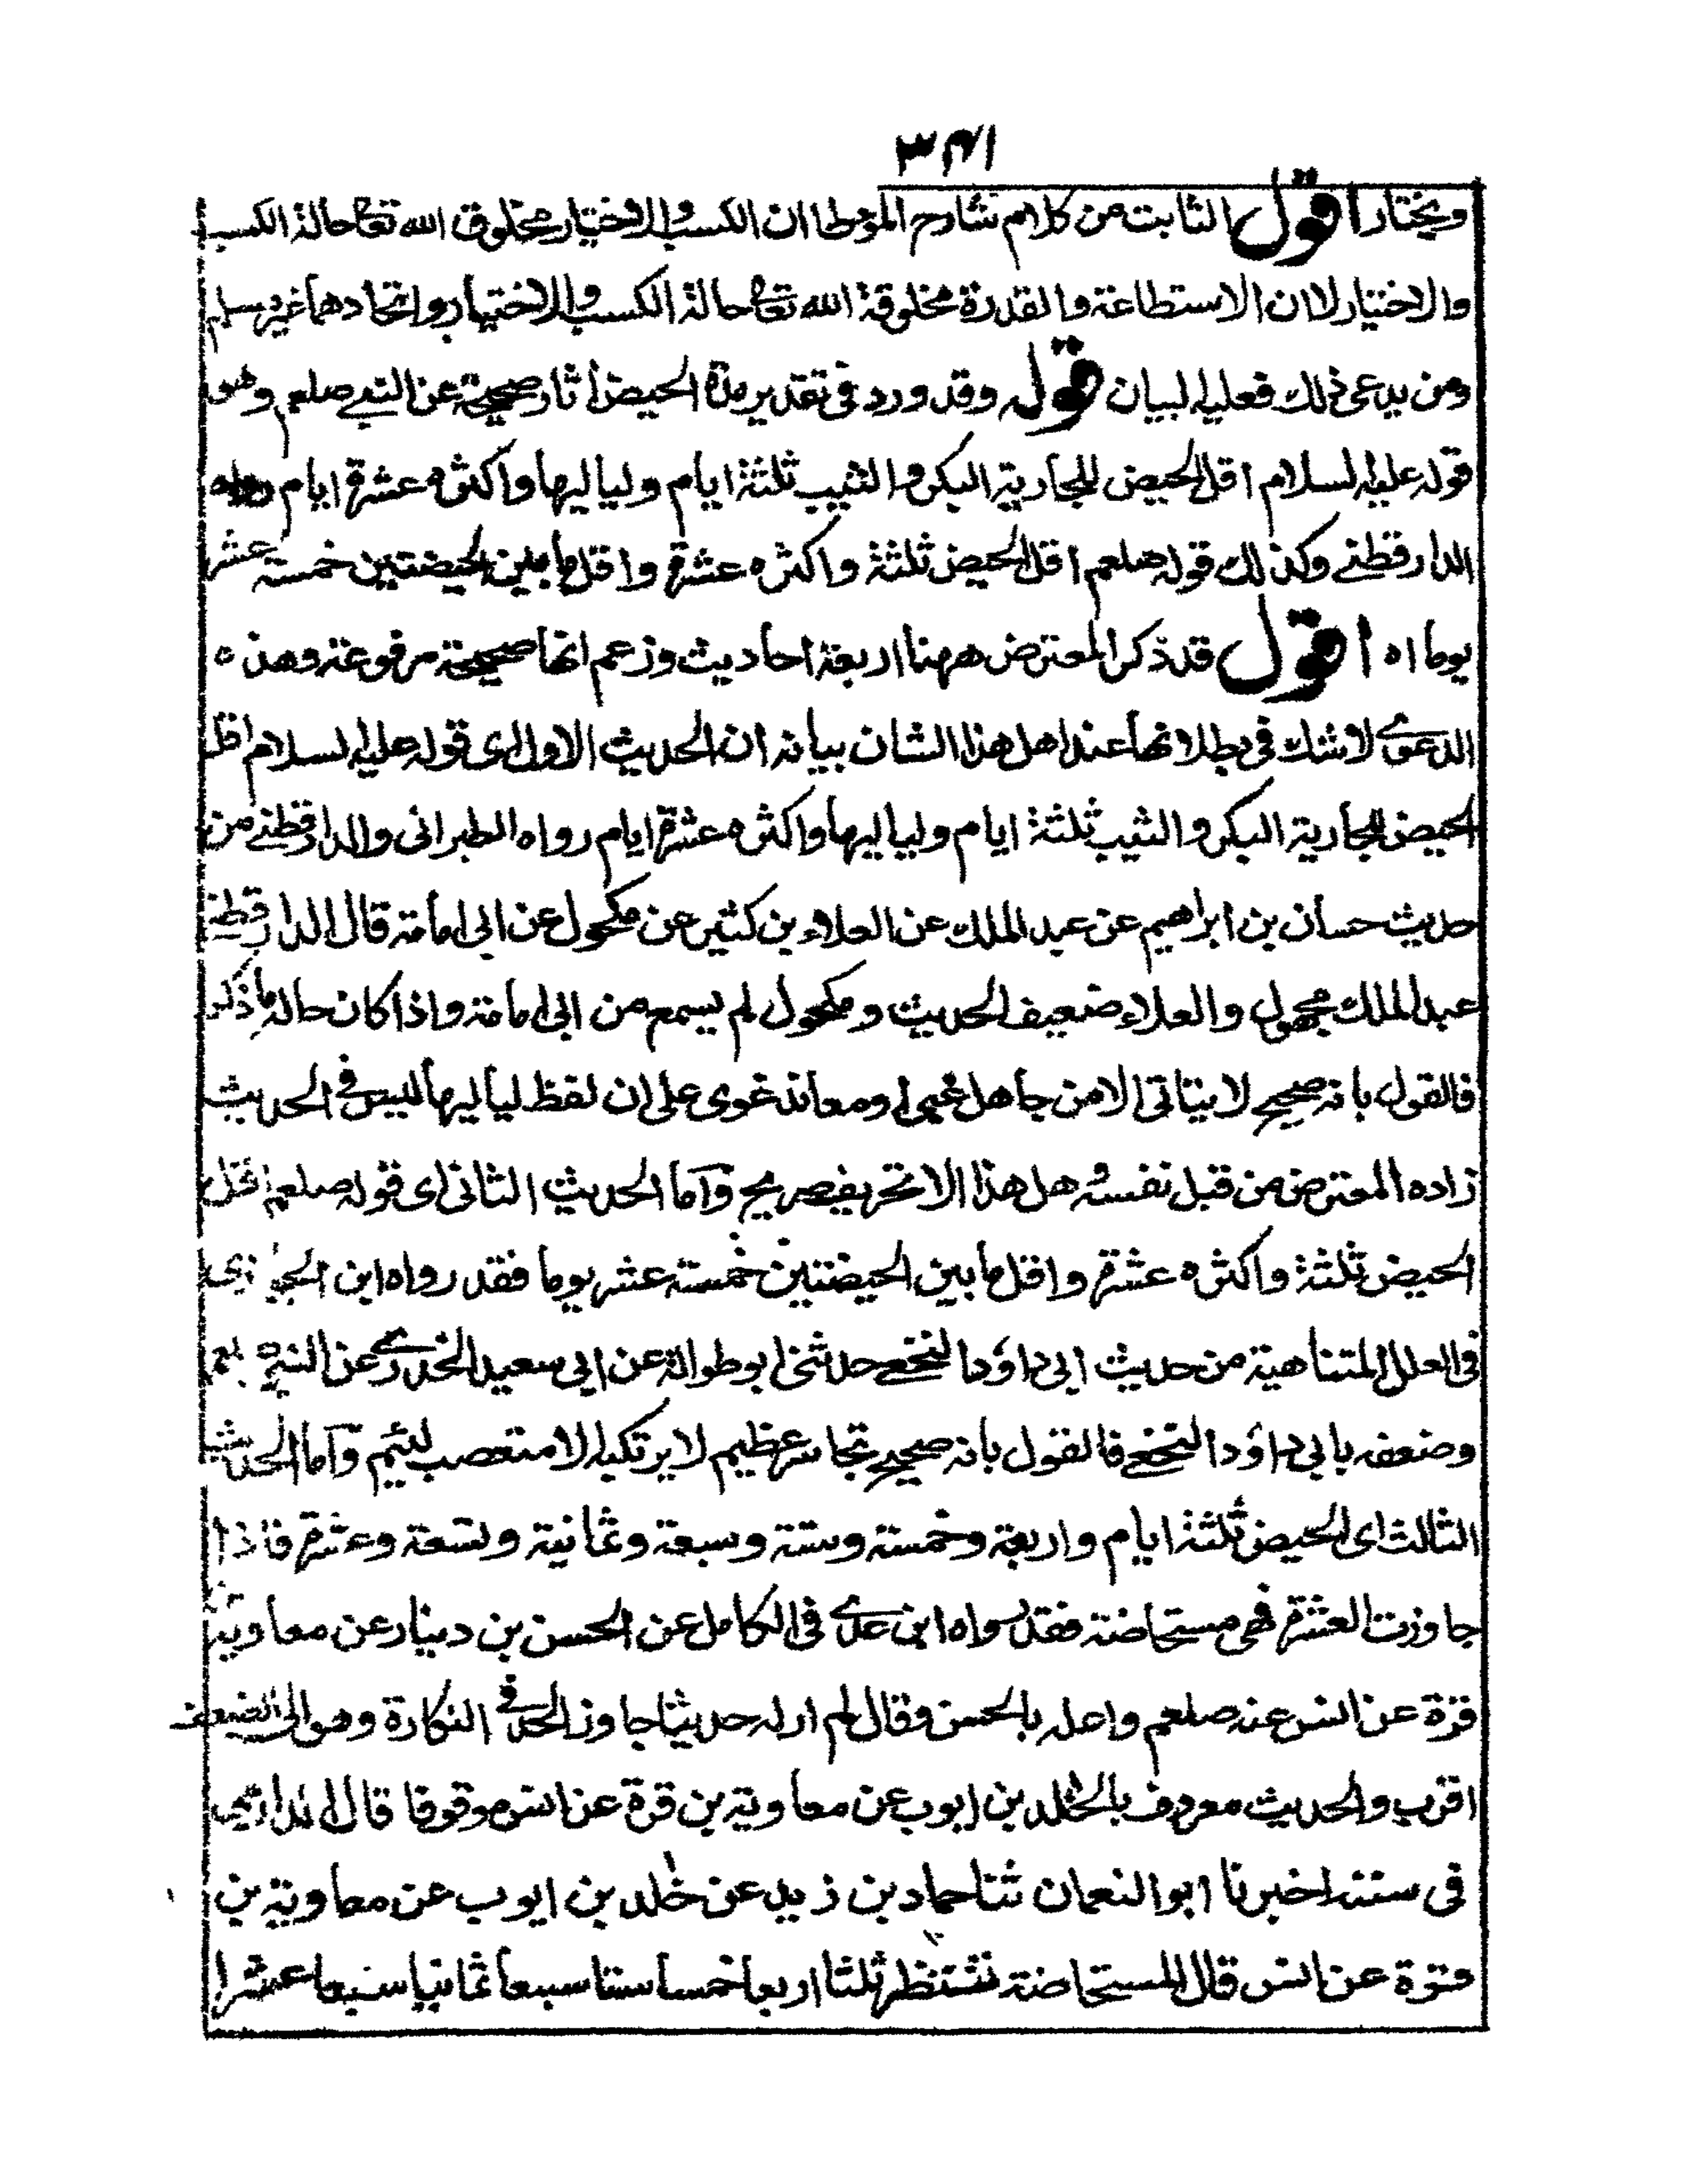 ٣٤١
ويختار اقول الثابت من كلام شارح الموطا ان الكسب والاختيار مخلوق الله تعا حالة الكسب
والاختيار لا ان الاستطاعة والقدرة مخلوقة الله تعا حالة الكسب والاختيار واتحادهما غير مسلم
ومن يدعى ذلك فعليه البيان قوله وقد ورد فى تقدير مدة الحيض أثار صحيحة عن النبي صلعم وهو
قوله عليه السلام اقل الحيض للجارية البكر والثيب ثلثة ايام ولياليها واكثره عشرة ايام رواه
الدارقطنے وكذلك قوله صلعم اقل الحيض ثلثة واكثره عشرة واقل ما بين الحيضتين خمسة عشر
يوما اه اقول قد ذكر المعترض ههنا اربعة احاديث وزعم انها صحيحة مرفوعة وهذه
الدعوے لا شك فى بطلانها عند اهل هذا الشان بيانه ان الحديث الاول اى قوله عليه السلام اقل
الحيض للجارية البكر والثيب ثلثة ايام ولياليها واكثره عشرة ايام رواه الطبرانى والدارقطنے من
حديث حسان بن ابراهيم عن عبد الملك عن العلاء بن كثير عن مكحول عن ابى امامة قال الدارقطنے
عبد الملك مجهول والعلاء ضعيف الحديث ومكحول لم يسمع من ابى امامة واذا كان حاله ما ذكر
فالقول بانه صحيح لا يتاتى الا من جاهل غبى او معاند غوى على ان لفظ لياليها ليس فى الحديث
زاده المعترض من قبل نفسه وهل هذا الا تحريف صريح وآما الحديث الثانى اى قوله صلعم اقل
الحيض ثلثة واكثره عشرة واقل ما بين الحيضتين خمسة عشر يوما فقد رواه ابن الجوزى
فى العلل المتناهية من حديث ابى داؤد النخعے حدثنى ابو طوالة عن ابى سعيد الخدرے عن النبى صلعم
وضعفه بابى داؤد النخعے فالقول بانه صحيح تجاسر عظيم لا يرتكبه الا متعصب لئيم وآما الحديث
الثالث اى الحيض ثلثة ايام واربعة وخمسة وستة وسبعة وثمانية وتسعة وعشرة فاذا
جاوزت العشرة فهى مستحاضة فقد رواه ابن عدے فى الكامل عن الحسن بن دينار عن معاوية بن
قرة عن انس عنه صلعم واعله بالحسن وقال لم ار له حديثا جاوز الحد فى النكارة وهو الى الضعف
اقرب والحديث معروف بالخلد بن ايوب عن معاوية بن قرة عن انس موقوفا قال الدارمى
فى سننه اخبرنا ابو النعمان ثنا حماد بن زيد عن خلد بن ايوب عن معاوية بن
قرة عن انس قال المستحاضة تنتظر ثلثا اربعا خمسا ستا سبعا ثمانيا سبعا عشرا